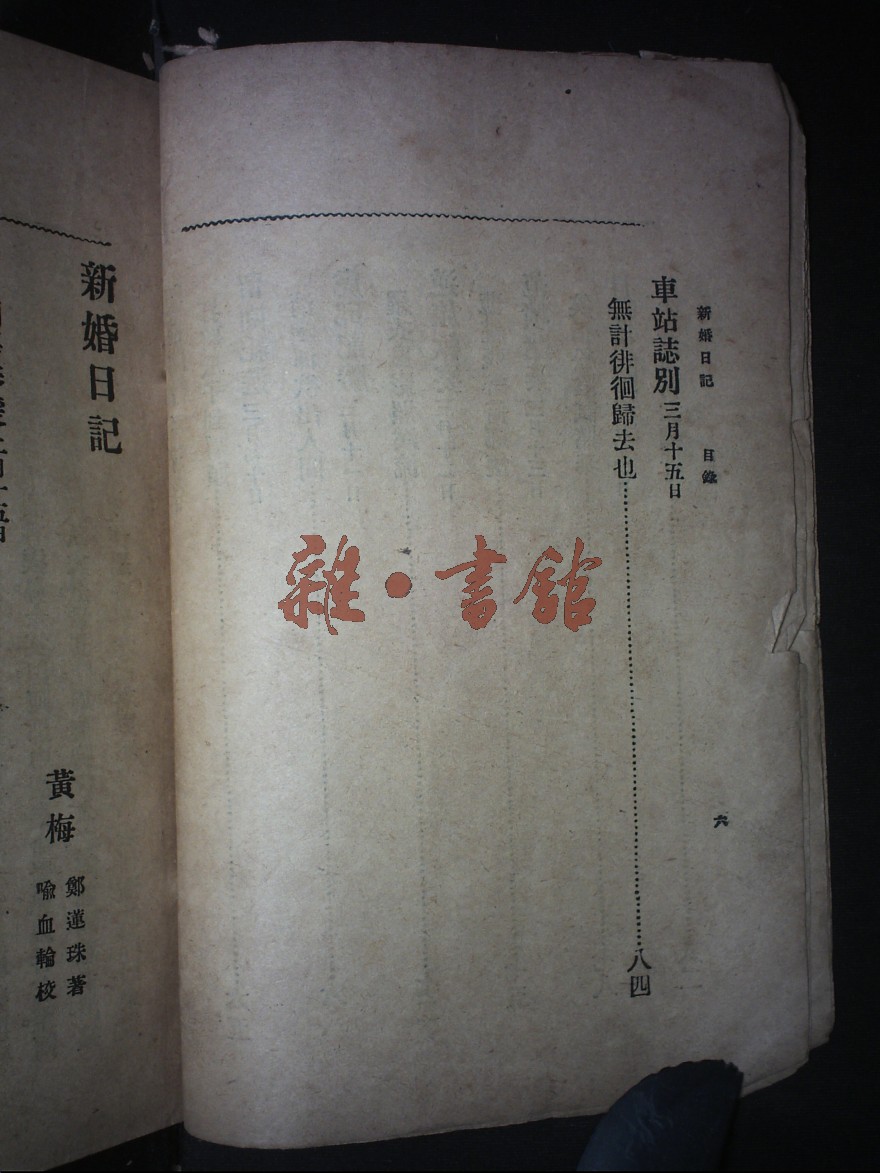 新婚日記　目錄　六
車站誌別 三月十五日
無計徘徊歸去也……八四
雜·書館
新婚日記
黃梅
鄭蓮珠著
喻血輪校